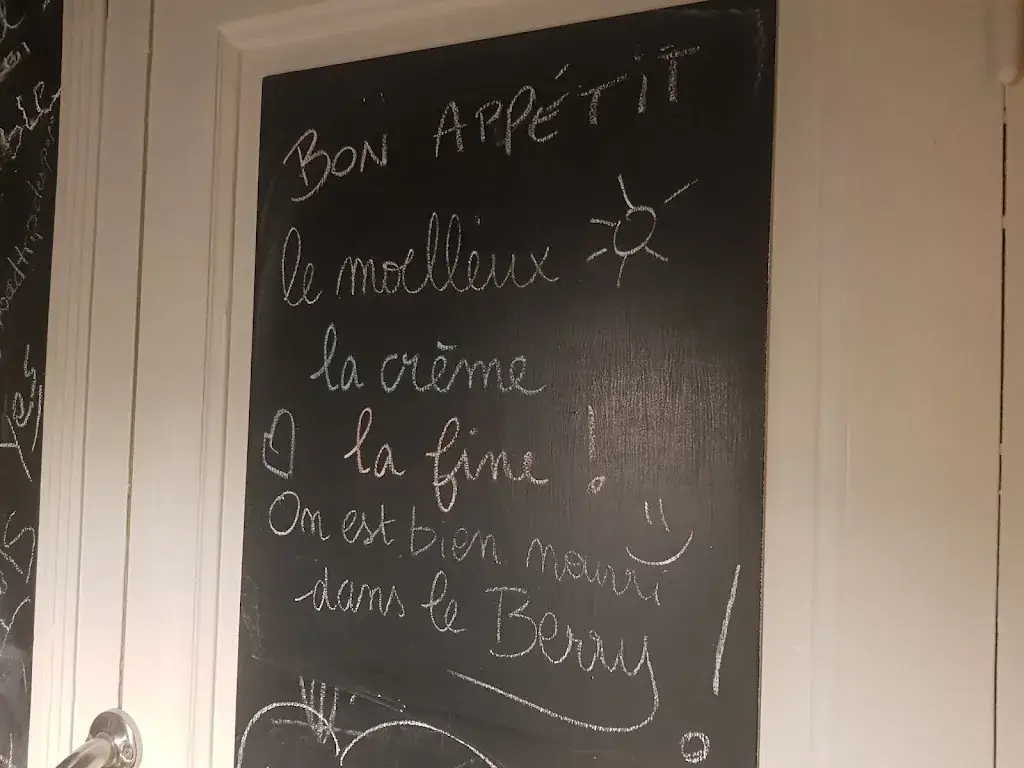 BON APPÉTIT
le moelleux
la crème
la fine !
On est bien nourri
dans le Berry !
yes